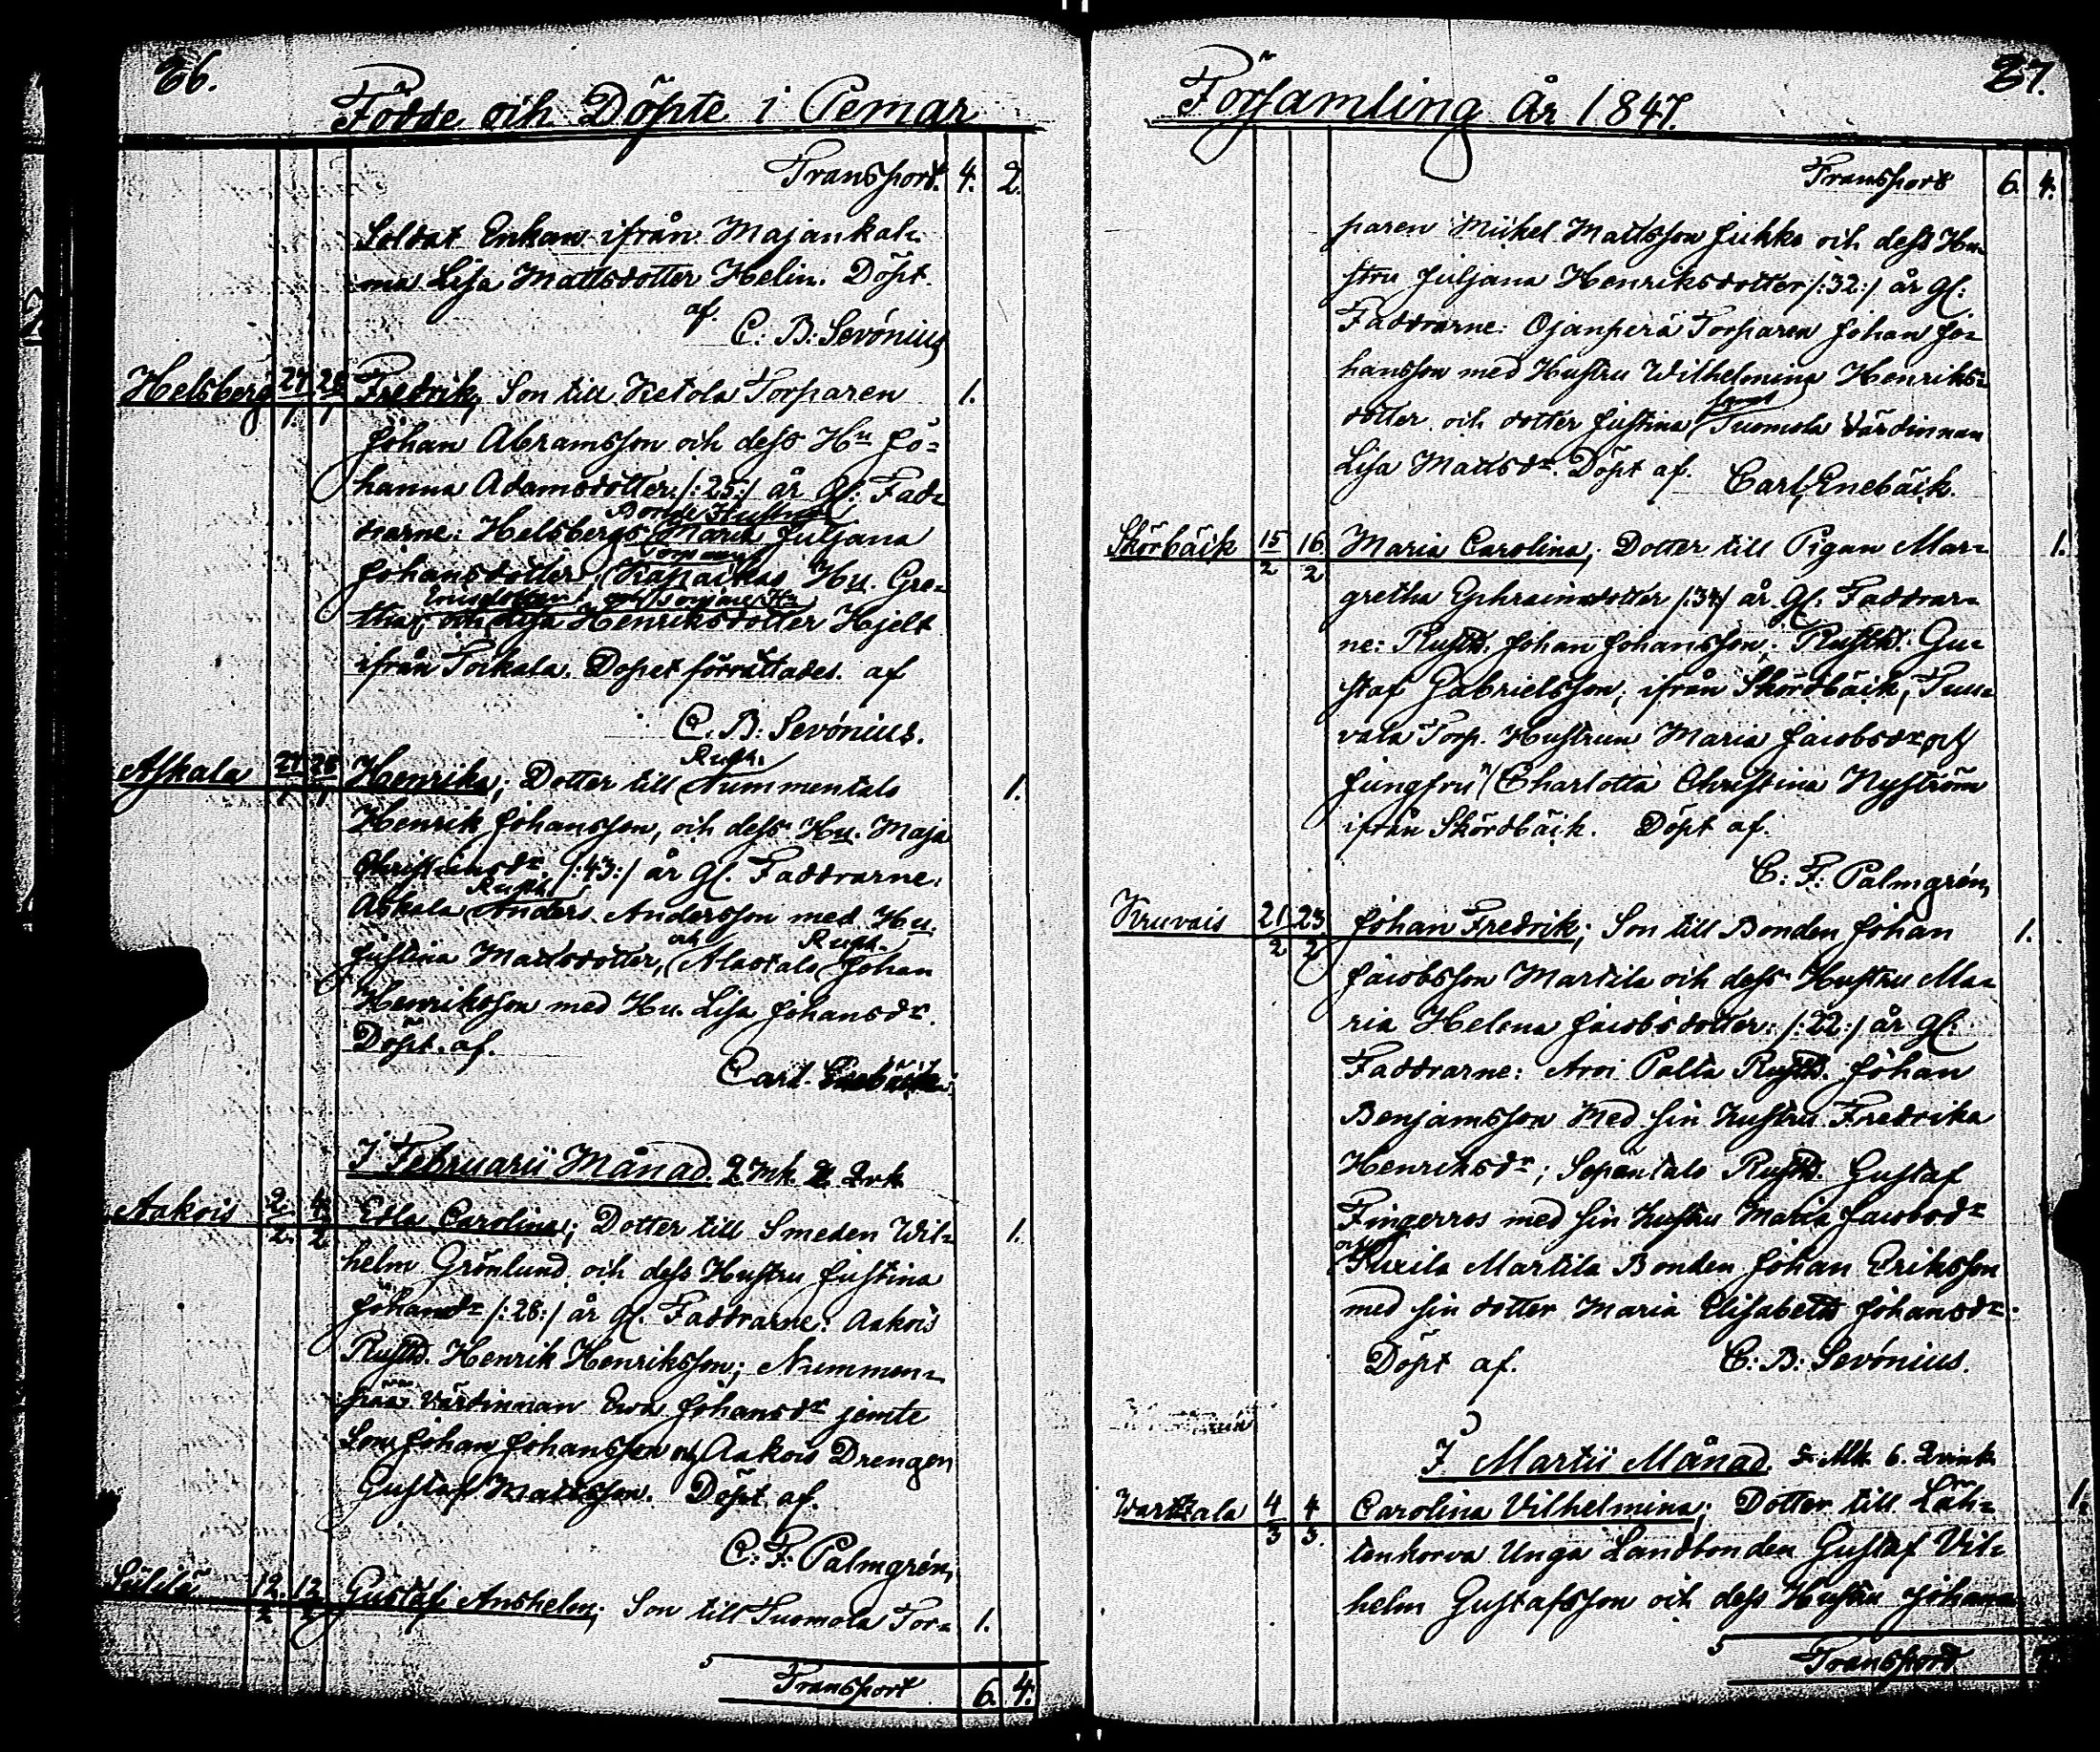 36.
Födde och Döpte i Pemar
Transport. 4. 2.
Soldat Enkan ifrån Majankul-
ma Lisa Mattsdotter Helin. Döpt.
af.
C. B: Sevónius
Helsberg 27/1. 28/1 Fredrik, Son till Ketola Torparen 1.
Johan Abramsson och dess Hu Jo-
hanna Adamsdotter /:25:/ år gl: Fad-
drarne: Helsbergs Bonde Hustrun Maria Juljana
Johansdotter, Hu. Gre-
tha, och Lisa Henriksdotter Hjelt
ifrån Torkala. Dopet förrättades af
C. B: Sevónius.
Askala 27/1 28/1 Henrika; Dotter till Rusth. Nummentalo 1.
Henrik Johansson, och dess Hu. Maja
Christiansdr /:43:/ år gl. Faddrarne:
Askala Rusth. Anders Andersson med Hu.
Justina Mattsdotter, och Alastalo Rusth. Johan
Henriksson med Hu. Lisa Johansdr.
Döpt. af.
Carl Enebäck.
I Februarii Månad. 2 mk. 2 Qvk
Aakois 2/2. 4/2 Edla Carolina; Dotter till Smeden Wil- 1.
helm Grönlund och dess Hustru Justina
Johansdr /:28:/ år gl. Faddrarne: Aakois
Rusth. Henrik Henriksson; Nummen-
pää Värdinnan Ewa Johansdr jemte
Son Johan Johansson och Aakois Drengen
Gustaf Mattsson. Döpt af.
C: F: Palmgrén,
12/2 12/2 Gustaf Anshelm; Son till Tuomola Tor- 1.
Transport 6. 4.
37.
Församling År 1847.
Transport 6. 4.
paren Mickel Mattsson Jukko och dess Hu-
stru Juljana Henriksdotter /:32:/ år gl:
Faddrarne: Ojanperä Torparen Johan Jo-
hansson med Hustru Wilhelmina Henriks-
dotter och dotter Justina samt Tuomola Värdinnan
Lisa Mattsdr. Döpt af. Carl Enebäck.
Skörbäck 15/2 16/2 Maria Carolina; Dotter till Pigan Mar- 1.
gretha Ephraimsdotter /:37/ år gl. Faddrar-
ne: Rusth. Johan Johansson; Rusth. Gu-
staf Gabrielsson, ifrån Skördbäck,
vala Torp. Hustrun Maria Jacobsdr och
Jungfrun Charlotta Christina Nyström
ifrån Skördbäck. Döpt af.
C: F: Palmgrén,
Kruvais 21/2 23/2 Johan Fredrik; Son till Bonden Johan 1.
Jacobsson Martila och dess Hustru Ma-
ria Helena Jacobsdotter. /:22:/ år gl:
Faddrarne: Arvi Palta Rusth. Johan
Benjamsson med sin hustru Fredrika
Henriksdr; Sepäntalo Rusth. Gustaf
Fingerroos med sin hustru Maria Jacobsdr
och Martila Bonden Johan Eriksson
med sin dotter Maria Elisabeth Johansdr.
Döpt af. C: B: Sevónius.
I Martii Månad. 5. Mk. 6. Qvink.
4/3 4/3. Carolina Vilhelmina; Dotter till Läh- 1.
tenkorva Unga Landbonden Gustaf Vil-
helm Gustafsson och dess Hustru Johana
Transport